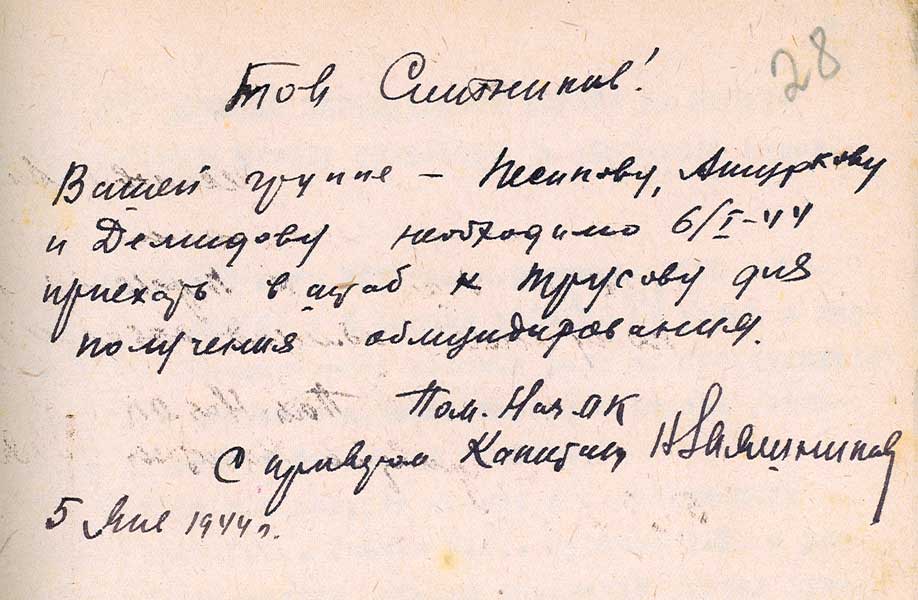 28
Тов Ситников!
Вашей группе – Песикову, Ашуркову
и Демидову необходимо 6/I-44
приехать в штаб к Трусову для
получения обмундирования.
Пом. Нач ОК
С приветом Капитан
5 Янв 1944 г.